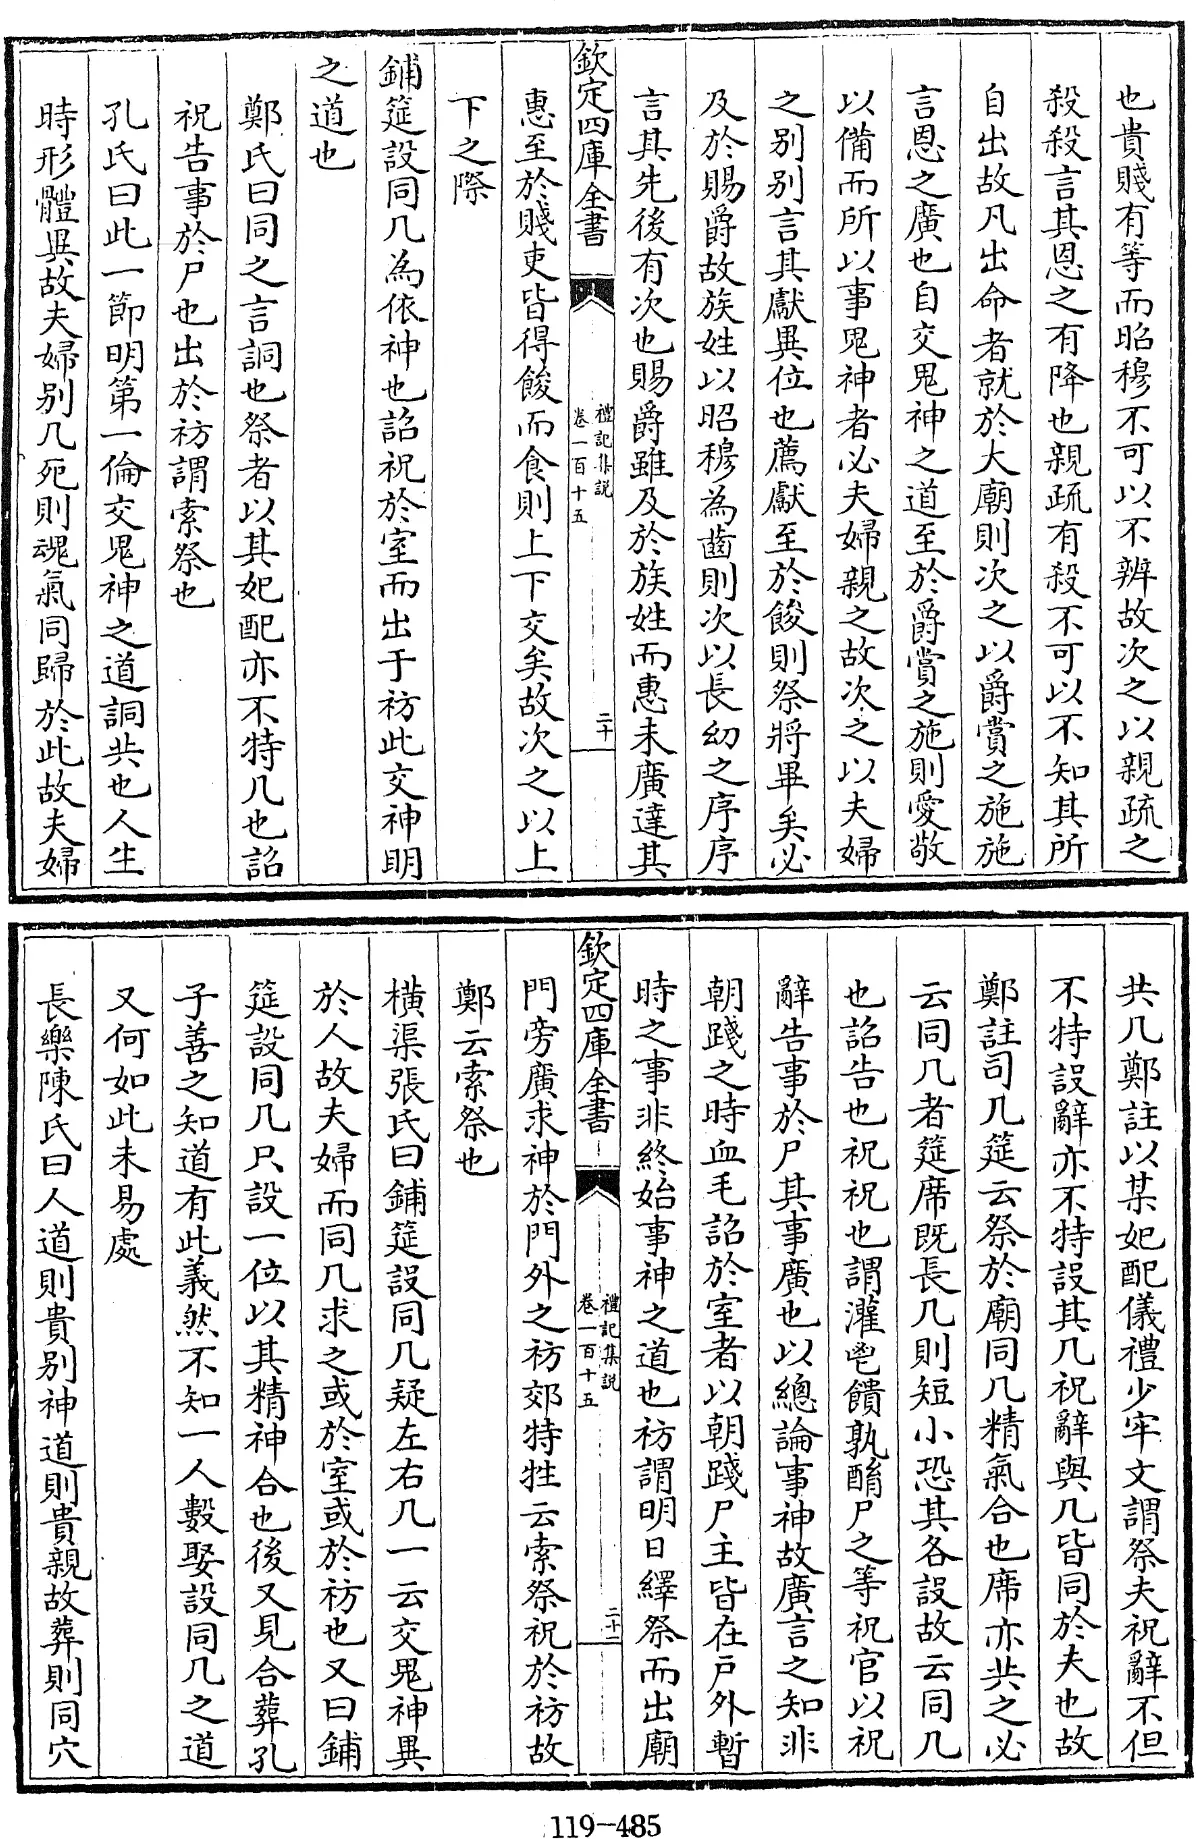 也貴賤有等而昭穆不可以不辨故次之以親疏之
殺殺言其恩之有降也親疏有殺不可以不知其所
自出故凡出命者就於大廟則次之以爵賞之施施
言恩之廣也自交鬼神之道至於爵賞之施則愛敬
以備而所以事鬼神者必夫婦親之故次之以夫婦
之别别言其獻異位也薦獻至於餕則祭將畢矣必
及於賜爵故族姓以昭穆為齒則次以長幼之序序
言其先後有次也賜爵雖及於族姓而惠未廣達其
欽定四庫全書
禮記集說
卷一百十五
二十
惠至於賤吏皆得餕而食則上下交矣故次之以上
下之際
鋪筵設同几為依神也詔祝於室而出于祊此交神明
之道也
鄭氏曰同之言詷也祭者以其妃配亦不特几也詔
祝告事於尸也出於祊謂索祭也
孔氏曰此一節明第一倫交鬼神之道詷共也人生
時形體異故夫婦别几死則魂氣同歸於此故夫婦
共几鄭註以某妃配儀禮少牢文謂祭夫祝辭不但
不特設辭亦不特設其几祝辭與几皆同於夫也故
鄭註司几筵云祭於廟同几精氣合也席亦共之必
云同几者筵席既長几則短小恐其各設故云同几
也詔告也祝祝也謂灌鬯饋孰酳尸之等祝官以祝
辭告事於尸其事廣也以總論事神故廣言之知非
朝踐之時血毛詔於室者以朝踐尸主皆在戶外暫
時之事非終始事神之道也祊謂明日繹祭而出廟
欽定四庫全書
禮記集說
卷一百十五
二十一
門旁廣求神於門外之祊郊特牲云索祭祝於祊故
鄭云索祭也
橫渠張氏曰鋪筵設同几疑左右几一云交鬼神異
於人故夫婦而同几求之或於室或於祊也又曰鋪
筵設同几只設一位以其精神合也後又見合葬孔
子善之知道有此義然不知一人數娶設同几之道
又何如此未易處
長樂陳氏曰人道則貴别神道則貴親故葬則同穴
119-485